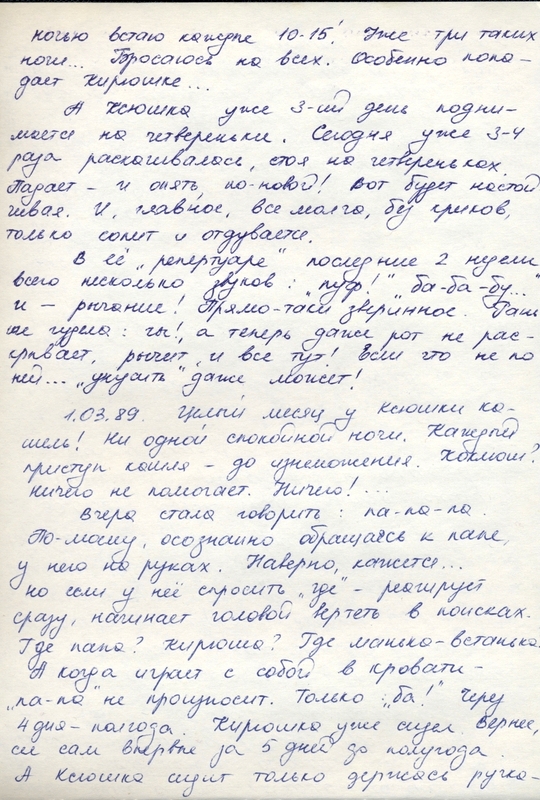 ночью встаю каждые 10-15'. Уже три таких
ночи... Бросаюсь на всех. Особенно попа-
дает Кирюшке...
А Ксюшка уже 3-ий день подни-
мается на четвереньки. Сегодня уже 3-4
раза раскачивалась, стоя на четвереньках.
Падает – и опять, по-новой! Вот будет настой
чивая. И, главное, все молча, без криков,
только сопит и отдувается.
В её „репертуаре" последние 2 недели
всего несколько звуков: „пуф!" „ба-ба-бу..."
и – рычание! Прямо-таки звериное. Рань
ше гудела: гы!, а теперь даже рот не рас-
крывает, рычит и все тут! Если что не по
ней... „укусить" даже может!
1.03.89. Целый месяц у Ксюшки ка-
шель! Ни одной спокойной ночи. Каждый
приступ кашля – до изнеможения. Коклюш?
Ничего не помогает. Ничего!...
Вчера стала говорить: па-па-па.
По-моему, осознанно обращаясь к папе,
у него на руках. Наверно, кажется...
но если у неё спросить „где" – реагирует
сразу, начинает головой вертеть в поисках.
Где папа? Кирюша? Где манька-встанька.
А когда играет с собой в кровати –
„па-па" не произносит. Только „ба!" Через
4 дня – полгода. Кирюшка уже сидел. Вернее,
сел сам впервые за 5 дней до полугода.
А Ксюшка сидит только держась ручка-